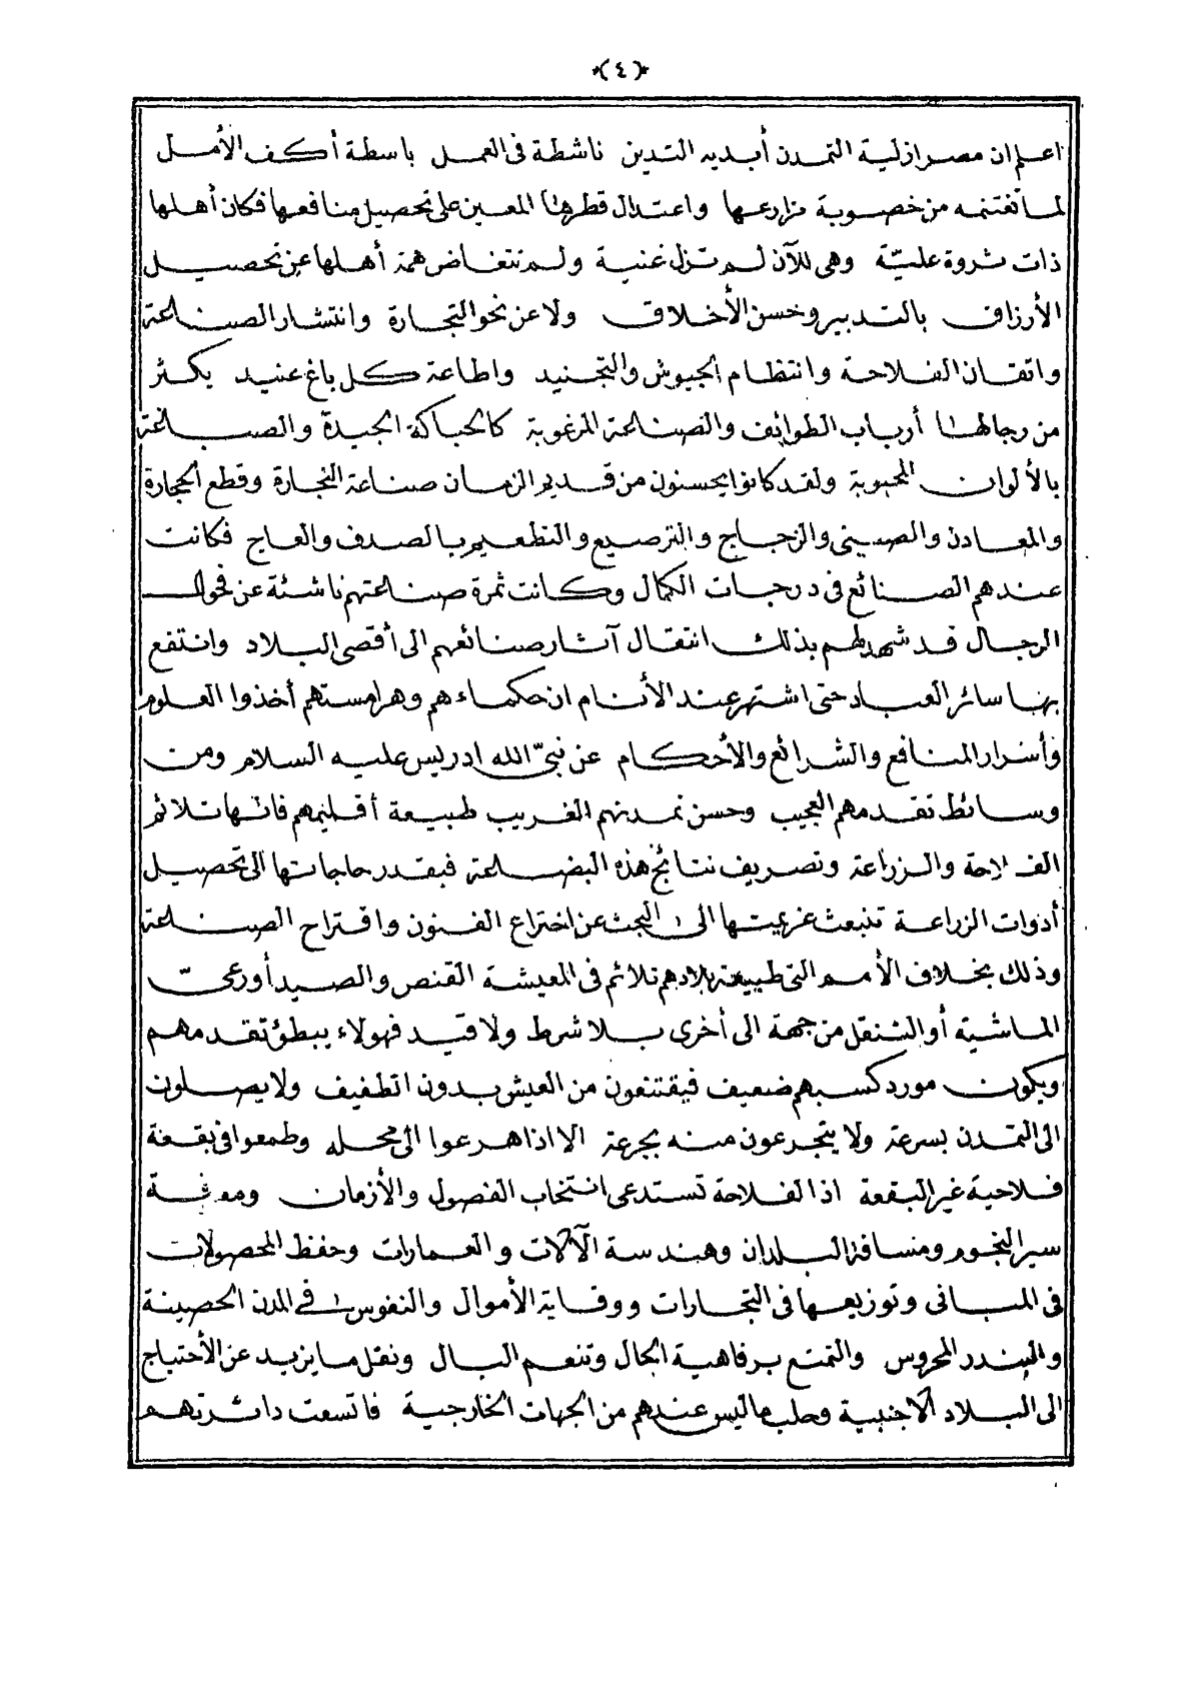 *(٤)*
اعلم ان مصر ازلية التمدن أبديه التدين ناشطة فى العمل باسطة أكف الأمل
لما تغتنمه من خصوبة مزارعها واعتدال قطرها المعين على تحصيل منافعها فكان أهلها
ذات ثروة عليّة وهى للآن لم تزل غنية ولم تتغاض همة أهلها عن تحصيل
الأرزاق بالتدبير وحسن الأخلاق ولا عن نحو التجارة وانتشار الصناعة
واتقان الفلاحة وانتظام الجيوش والتجنيد واطاعة كل باغ عنيد يكثر
من رجالها أرباب الطوائف والصناعة المرغوبة كالحياكة الجيدة والصباغة
بالألوان المحبوبة ولقد كانوا يحسنون من قديم الزمان صناعة النجارة وقطع الحجارة
والمعادن والصينى والزجاج والترصيع والتطعيم بالصدف والعاج فكانت
عندهم الصنائع فى درجات الكمال وكانت ثمرة صناعتهم ناشئة عن فحول
الرجال قد شهد لهم بذلك انتقال آثار صنائعهم الى أقصى البلاد وانتفع
بها سائر العباد حتى اشتهر عند الأنام ان حكماءهم وهرامستهم أخذوا العلوم
وأسرار المنافع والشرائع والأحكام عن نبىّ الله ادريس عليه السلام ومن
وسائط تقدمهم العجيب وحسن تمدنهم الغريب طبيعة أقليمهم فانها تلائم
الفلاحة والزراعة وتصريف نتائج هذه البضاعة فبقدر حاجاتها الى تحصيل
أدوات الزراعة تنبعث عزيمتها الى البحث عن اختراع الفنون واقتراح الصناعة
وذلك بخلاف الأمم التى طبيعة بلادهم تلائم فى المعيشة القنص والصيد أو رعىّ
الماشية أو التنقل من جهة الى أخرى بلا شرط ولا قيد فهولاء يبطؤ تقدمهم
ويكون مورد كسبهم ضعيف فيقتنعون من العيش بدون الطفيف ولا يصلون
الى التمدن بسرعة ولا يتجرعون منه بجرعة الا اذا هرعوا الى محله وطمعوا فى بقعة
فلاحية غير البقعة اذ الفلاحة تستدعى انتخاب الفصول والأزمان ومعرفة
سير النجوم ومسافة البلدان وهندسة الآلات والعمارات وحفظ المحصولات
فى المبانى وتوزيعها فى التجارات ووقاية الأموال والنفوس فى المدن الحصينة
والبندر المحروس والتمتع برفاهية الحال وتنعم البال ونقل ما يزيد عن الأحتياج
الى البلاد الاجنبية وجلب ما ليس عندهم من الجهات الخارجية فاتسعت دائرتهم